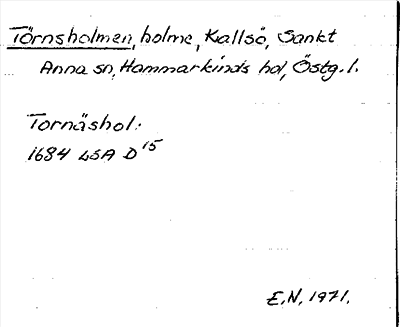 Törnsholmen, holme, Kallsö, Sankt
Anna sn, Hammarkinds hd, Östg. l.
Tornäshol:
1684 LSA D 15
E.N. 1971.